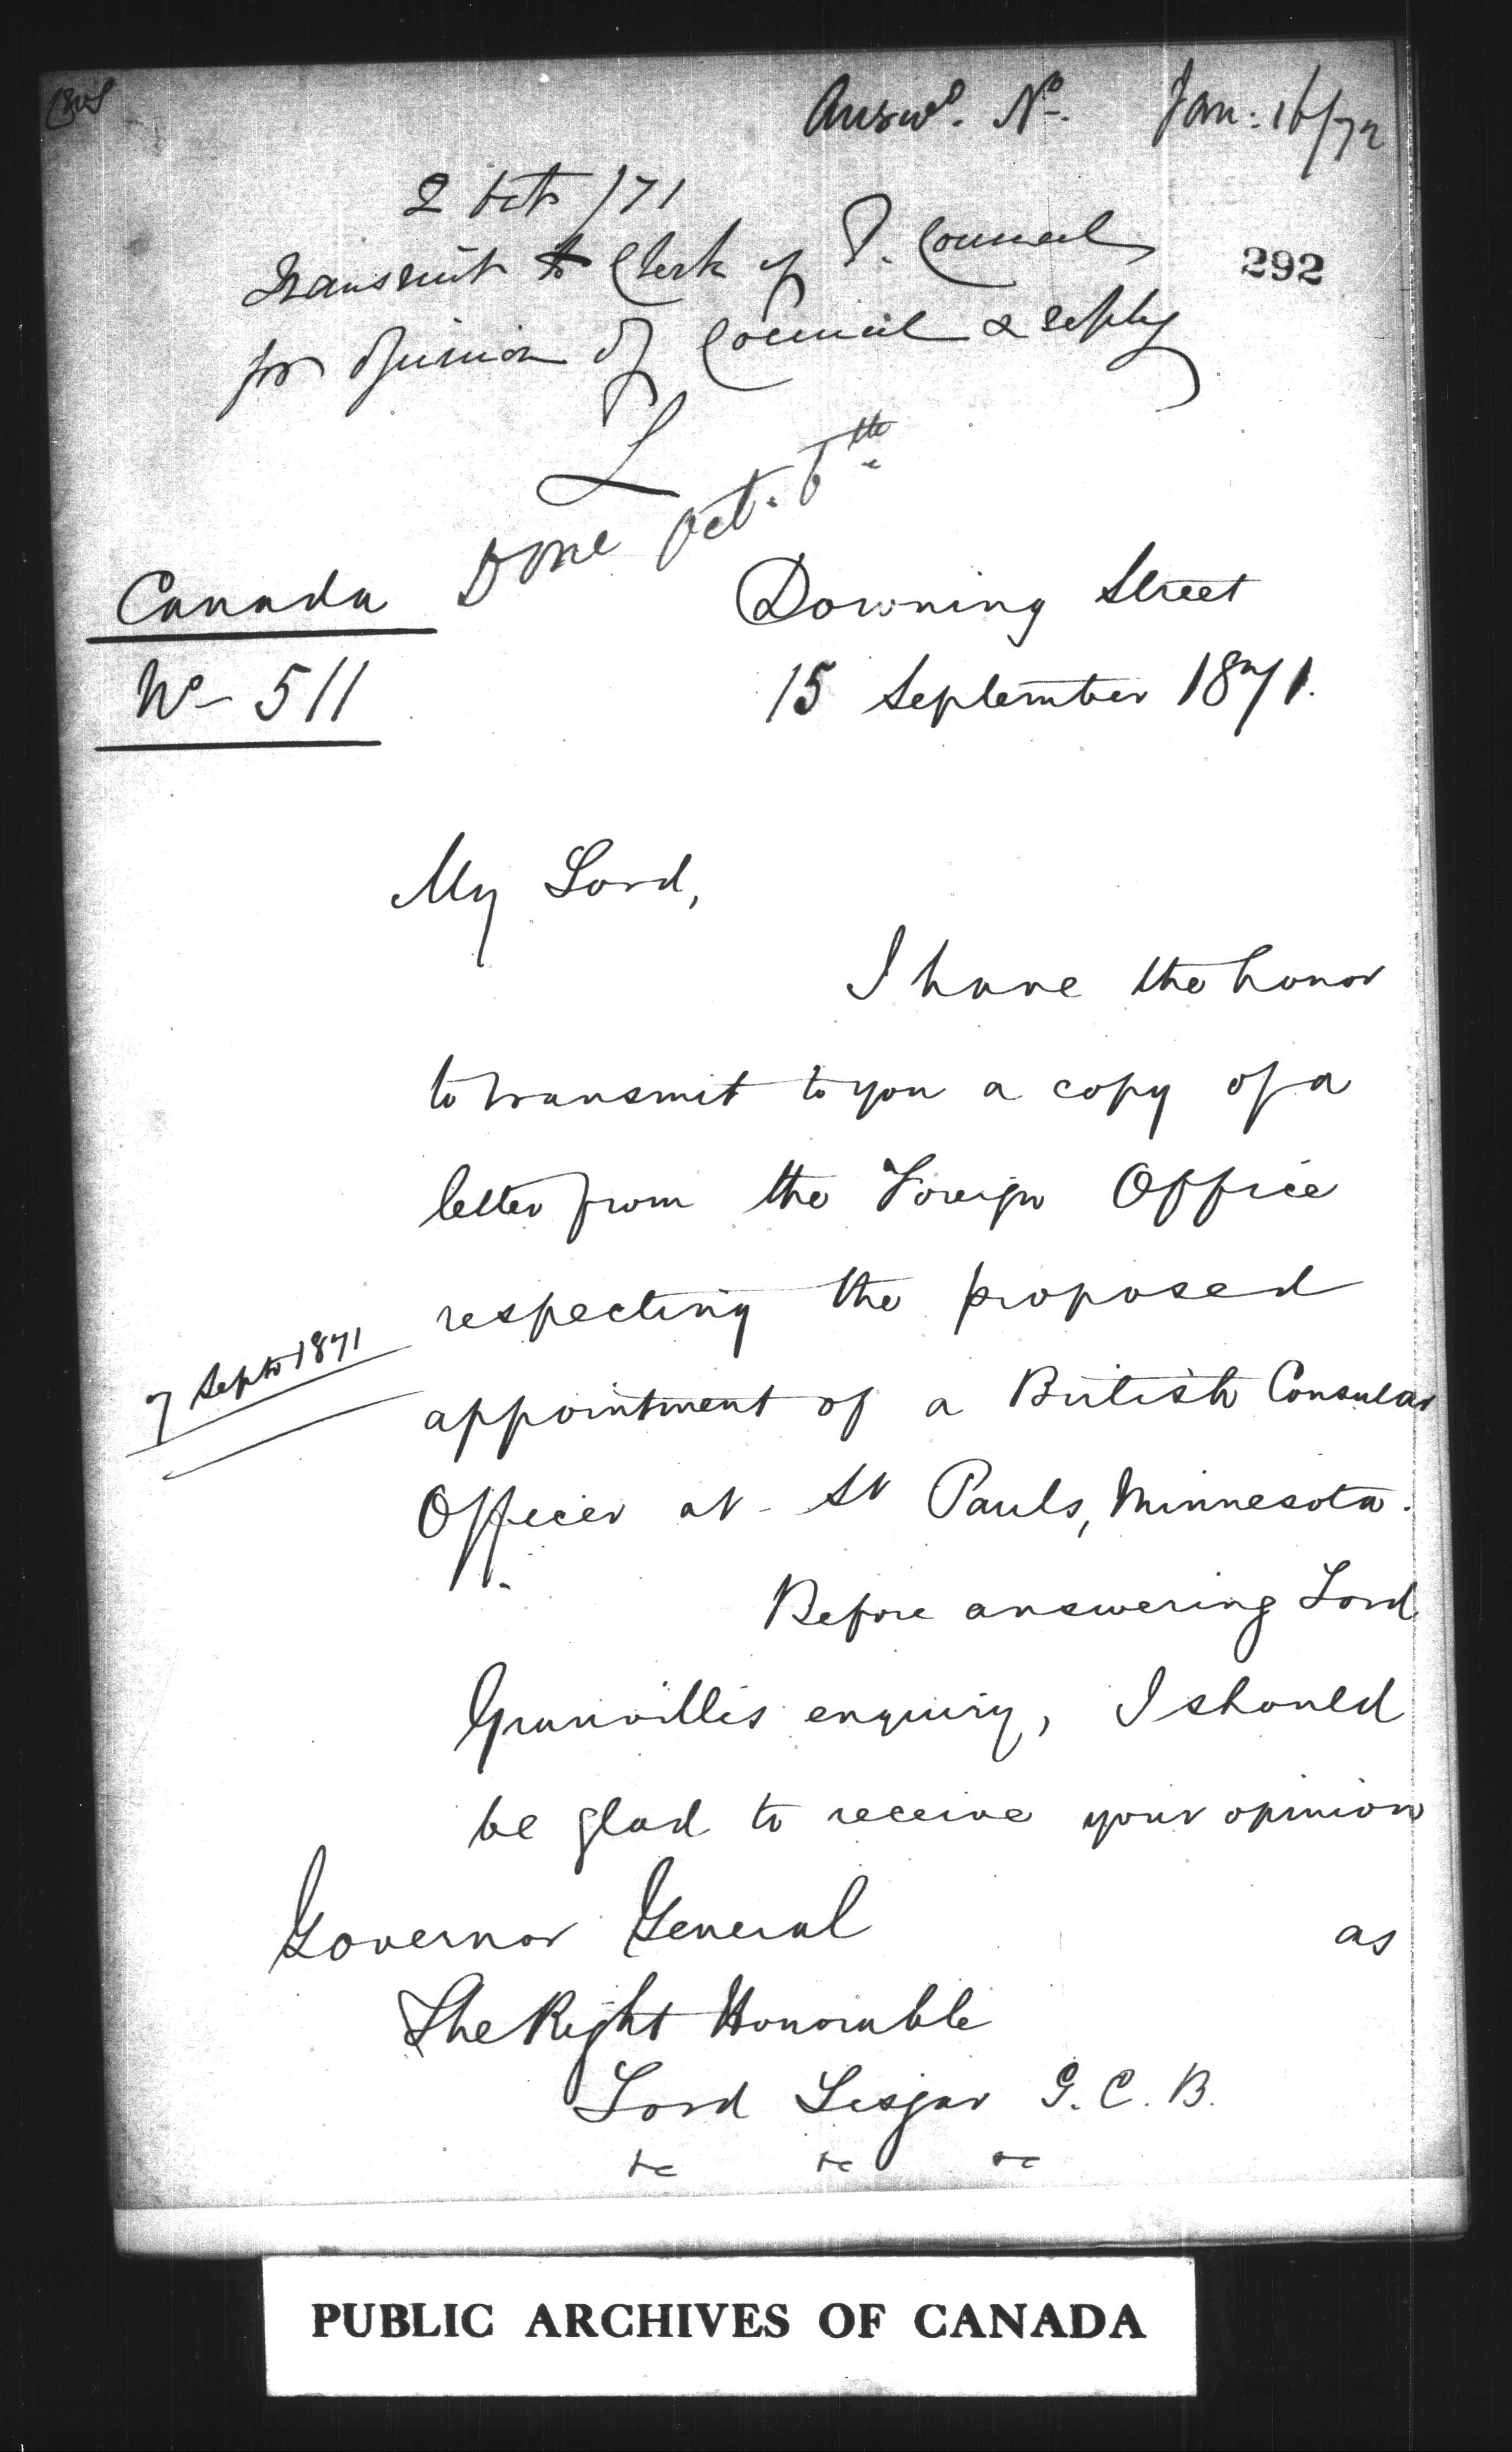 Answd. No. Jan: 16/72
2 Oct /71
Transmit to Clerk of P. Council
292
for opinion of Council & reply
L
Done Oct. 6th
Canada
No 511
Downing Street
15 September 1871.
My Lord,
I have the honor
to transmit to you a copy of a
letter from the Foreign Office
respecting the proposed
7 Septr 1871
appointment of a British Consular
Officer at St Pauls, Minnesota.
Before answering Lord
Granville's enquiry, I should
be glad to receive your opinion
as
Governor General
The Right Honorable
Lord Lisgar G.C.B.
&c &c &c
PUBLIC ARCHIVES OF CANADA